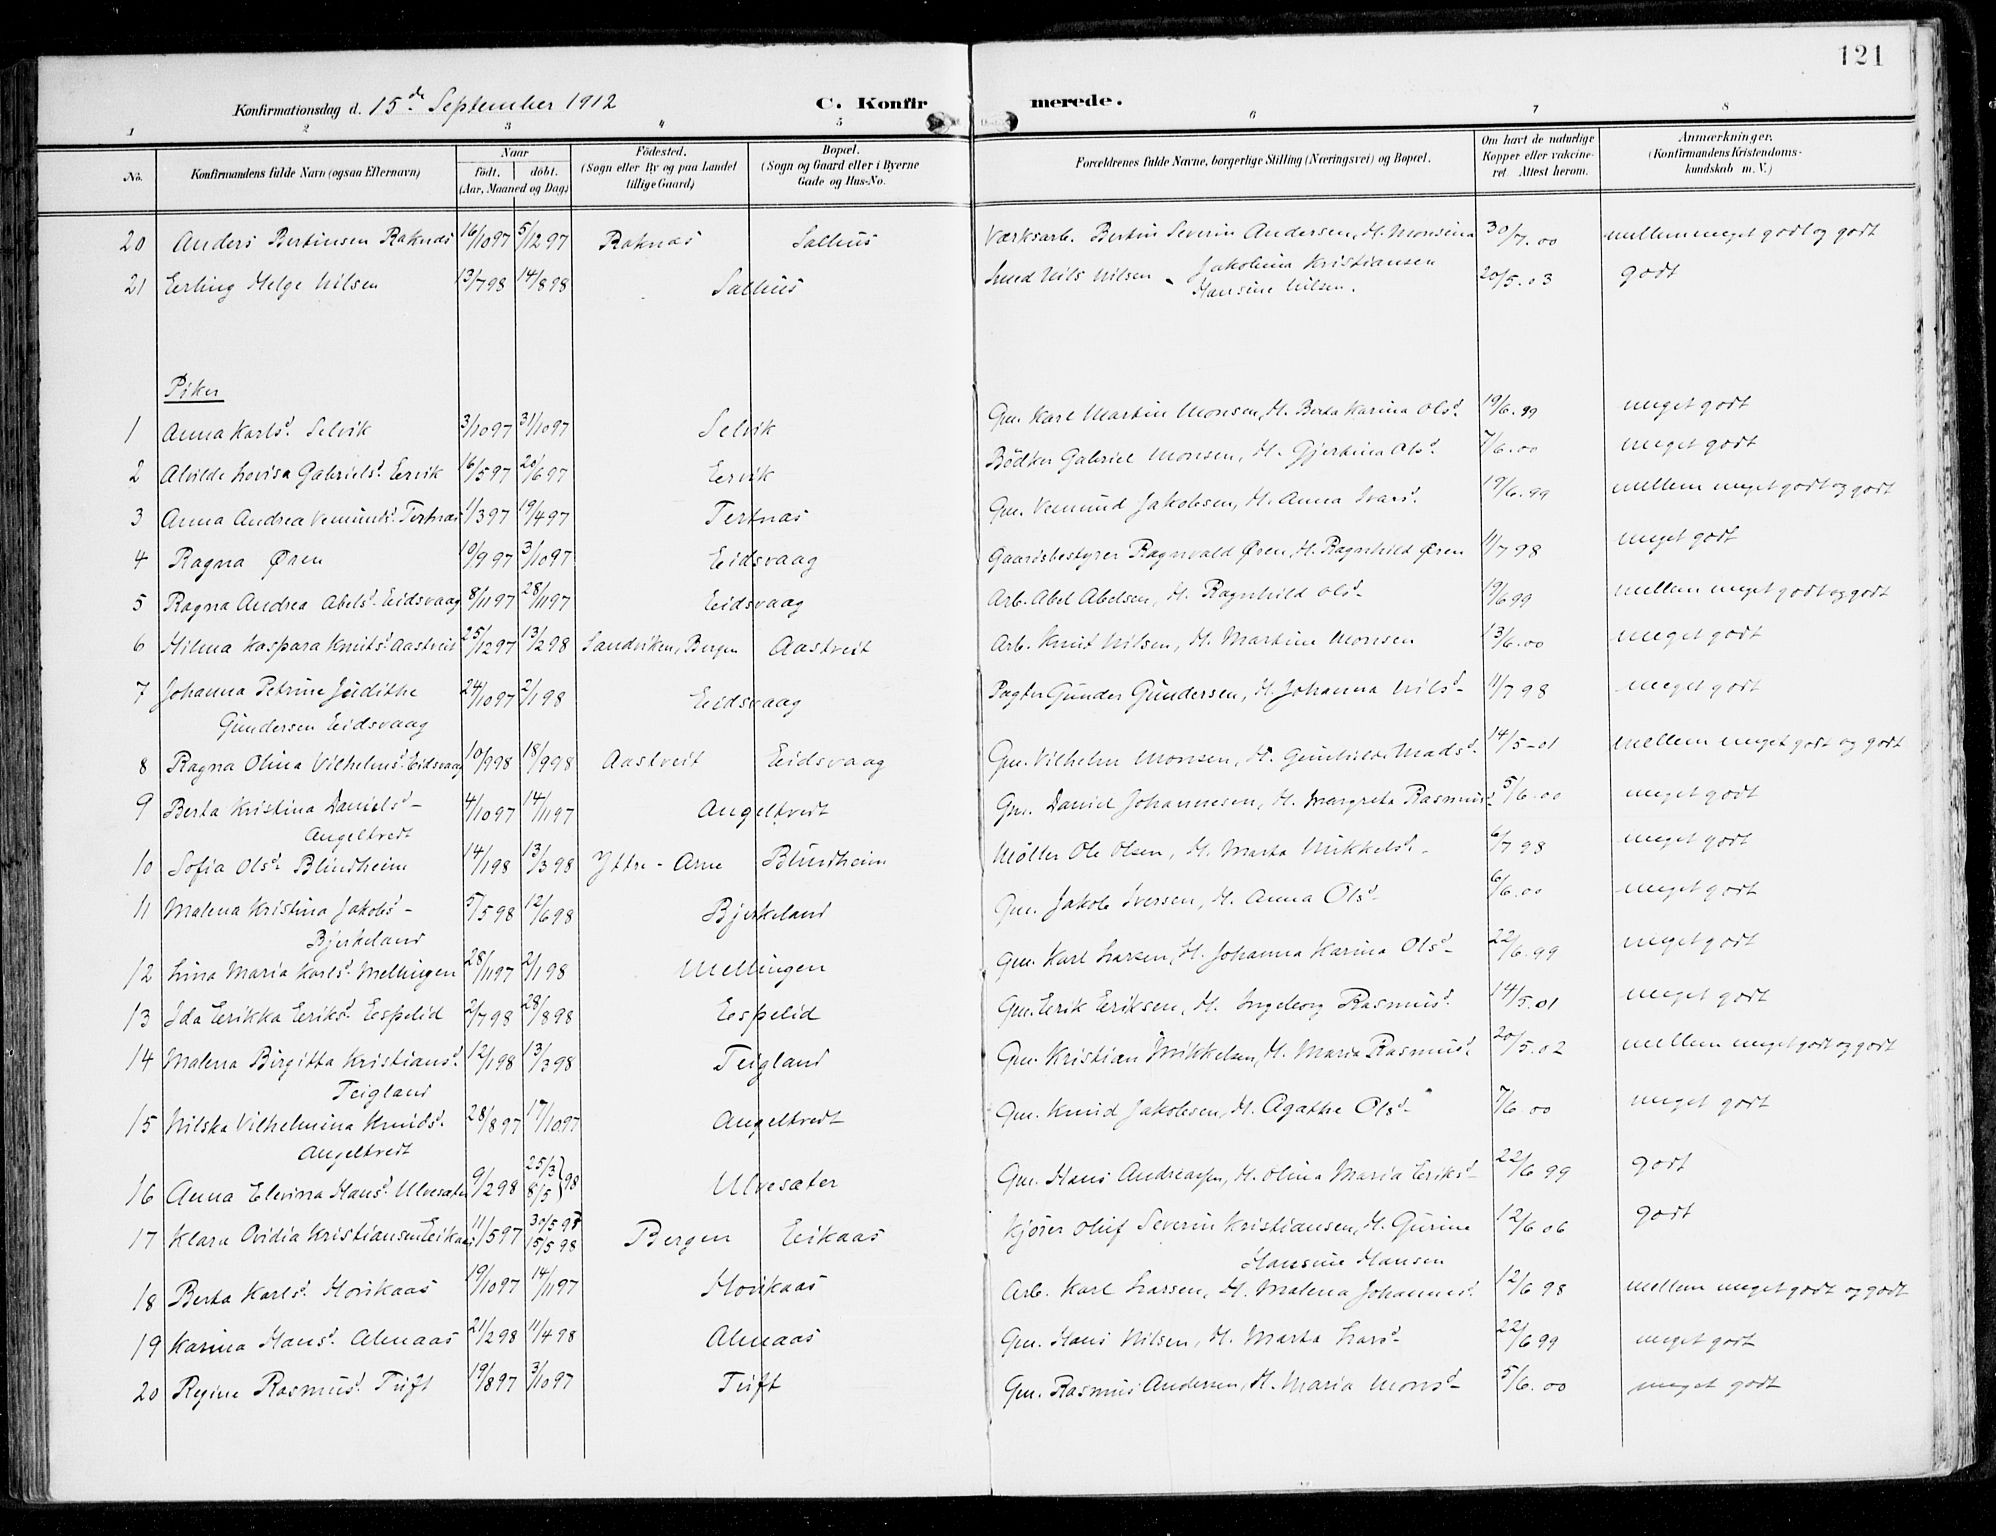 121
Konfirmationsdag d. 15de September 1912 C. Konfir merede.
1 2 3 4 5 6 7 8
No. Konfirmandens fulde Navn (ogsaa Efternavn) Naar født. døbt. (Aar, Maaned og Dag) Fødested. (Sogn eller By og paa Landet tillige Gaard) Bopæl. (Sogn og Gaard eller i Byerne Gade og Hus-No. Forældrenes fulde Navne, borgerlige Stilling (Næringsvei) og Bopæl. Om havt de naturlige Kopper eller vakcineret. Attest herom. Anmærkninger. (Konfirmandens Kristendomskundskab m. V.)
20 Anders Bertinsen Raknas 16/10 97 5/12 97 Raknas Salhus Værksarb. Bertin Severin Andersen, H. Monsina 30/7.00 mellem meget godt og godt
21 Erling Helge Nilsen 13/7 98 14/8 98 Salhus Smed Nils Nilsen - Jakobina Kristiansen 20/5.03 godt
Hansine Nilsen.
Piker
1 Anna Karlsd. Selvik 3/10 97 31/10 97 Selvik Gm. Karl Martin Monsen, H. Berta Karina Olsd. 19/6.99 meget godt
2 Alvilde Lovisa Gabrielsd. Eervik 16/5 97 20/6 97 Eervik Bødker Gabriel Monsen, H. Gjertina Olsd. 7/6.00 meget godt
3 Anna Andrea Vemundsd. Tertnas 11/3 97 19/4 97 Tertnas Gm. Vemund Jakobsen, H. Anna Ivarsd. 19/6.99 mellem meget godt og godt
4 Ragna Øren 10/9 97 3/10 97 Eidsvaag Gaardsbestyrer Ragnvald Øren, H. Ragnhild Øren 11/7 98 meget godt
5 Ragna Andrea Abelsd. Eidsvaag 8/11 97 28/11 97 Eidsvaag Arb. Abel Abelsen, H. Ragnhild Olsd- 19/6 99 mellem meget godt og godt
6 Hilma Kaspara Knutsd. Aastveit 25/12 97 13/2 98 Sandviken, Bergen Aastveit Arb. Knut Nilsen, H. Martine Monsen 13/6.00 meget godt
7 Johanna Petrine Judithe 24/10 97 2/1 98 Eidsvaag Pagter Gunder Gundersen, H. Johanna Nilsd- 11/7 98 meget godt
Gundersen Eidsvaag
8 Ragna Olina Vilhelmsd. Eidsvaag 10/9 98 18/9 98 Aastveit Eidsvaag Gm. Vilhelm Monsen, H. Gunhilda Madsd. 14/5-01 mellem meget godt og godt
9 Berta Kristina Danielsd- 4/10 97 14/11 97 Angeltvedt Gm. Daniel Johannesen, H. Margreta Rasmusd. 5/6.00 meget godt
Angeltvedt
10 Sofia Olsd. Blindheim 14/1 98 13/3 98 Yttre-Arne Blindheim Møller Ole Olsen, H. Marta Mikkelsd.- 6/7 98 meget godt
11 Malena Kristina Jakobsd- 5/5 98 12/6 98 Bjerkeland Gm. Jakob Iversen, H. Anna Olsd- 6/6.00 meget godt
Bjerkeland
12 Lina Maria Karlsd. Mellingen 28/11 97 2/1 98 Mellingen Gm. Karl Larsen, H. Johanna Karina Olsd- 22/6.99 meget godt
13 Ida Erikka Eriksd. Espelid 2/7 98 28/8 98 Espelid Gm. Erik Eriksen, H. Ingeborg Rasmusd. 14/5.01 meget godt
14 Malena Birgitta Kristiansd. 12/1 98 13/3 98 Teigland Gm. Kristian Mikkelsen, H. Maria Rasmusd. 20/5.02 mellem meget godt og godt
Teigland
15 Nilska Vilhelmina Knudsd. 28/8 97 17/10 97 Angeltvedt Gm. Knud Jakobsen, H. Agathe Olsd- 7/6 00 meget godt
Angeltvedt
16 Anna Elevina Hansd. Ulvesæter 9/2 98 25/3 8/5 } 98 Ulvesæter Gm. Hans Andreassen, H. Olina Maria Eriksd- 22/6 99 godt
17 Klara Ovidia Kristiansen Eikaas 11/5 97 30/5 97 15/5 98 Bergen Eikaas Kjører Oluf Severin Kristiansen, H. Gurine 12/6 06 godt
Hansine Hansen
18 Berta Karlsd. Hovikaas 19/10 97 14/11 97 Hovikaas Arb. Karl Larsen, H. Malena Johannesd. 12/6 98 mellem meget godt og godt
19 Karina Hansd. Almaas 21/2 98 11/4 98 Almaas Gm. Hans Nilsen, H. Marta Larsd- 22/6 99 meget godt
20 Regine Rasmusd. Tuft 19/8 97 3/10 97 Tuft Gm. Rasmus Andersen, H. Maria Monsd- 5/6.00 meget godt